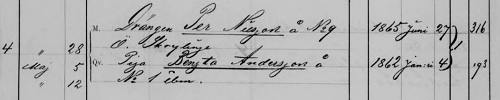 M. Drängen Per Nilsson å No 9 1865 Juni 27 316
4 " 28 Ö.
Maj 5 Qv. Piga Bengta Andersson å 1862 januari 4 193
" 12 No 1 ibm.